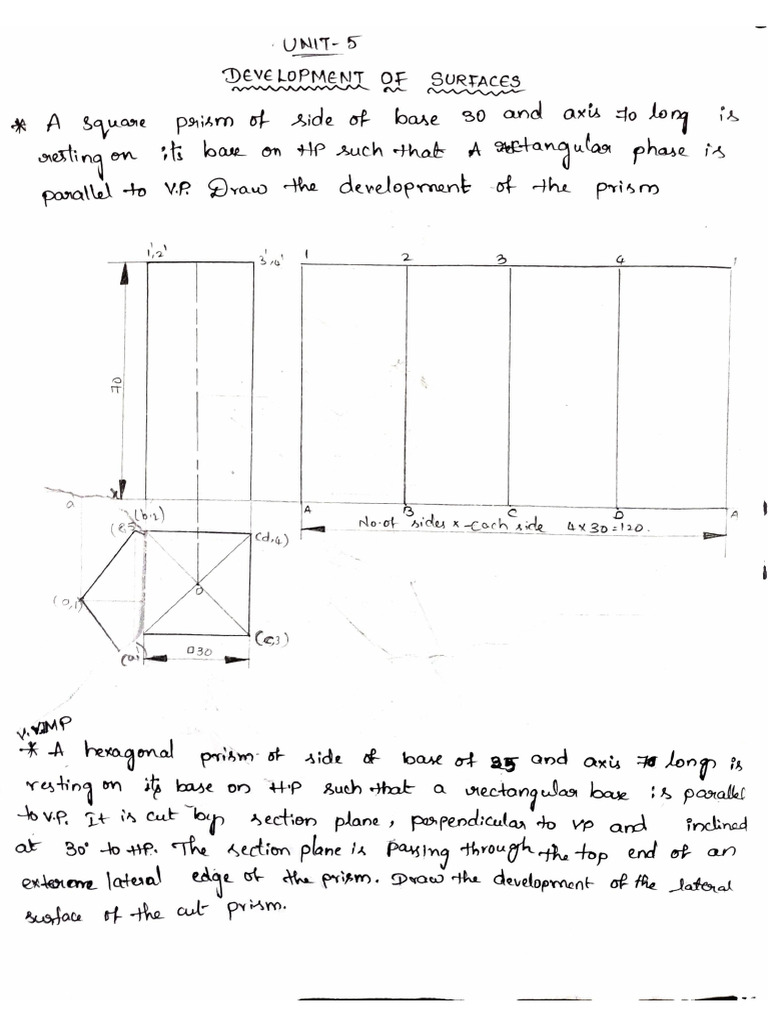 UNIT-5
DEVELOPMENT OF SURFACES
* A square prism of side of base 30 and axis 70 long is
resting on its base on HP such that A rectangular phase is
parallel to V.P. Draw the development of the prism
1',2' 3',4' 1 2 3 4 1
70
x
a
A B C D A
(b,2)
No.of sides x each side 4x30=120.
(d,4)
(0,1)
0
(c,3)
(a,1)
□30
V.V.IMP
* A hexagonal prism of side of base of 25 and axis 70 long is
resting on its base on H.P such that a rectangular base is parallel
to V.P. It is cut by section plane, perpendicular to VP and inclined
at 30° to HP. The section plane is passing through the top end of an
extereme lateral edge of the prism. Draw the development of the lateral
surface of the cut prism.